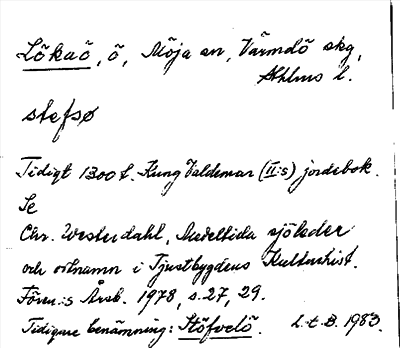 Lökaö, ö, Möja sn, Värmdö skg,
Sthlms l.
stefsø
Tidigt 1300 t. Kung Valdemar (II:s) jordebok.
Se
Chr. Westerdahl, Medeltida sjöleder
och ortnamn i Tjustbygdens Kulturhist.
Fören:s Årsb. 1978, s. 27, 29.
Tidigare benämning: Stöfvelö. L.t.B. 1983.